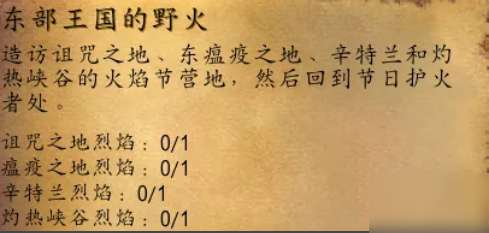 东部王国的野火
造访诅咒之地、东瘟疫之地、辛特兰和灼
热峡谷的火焰节营地，然后回到节日护火
者处。
诅咒之地烈焰：0/1
瘟疫之地烈焰：0/1
辛特兰烈焰：0/1
灼热峡谷烈焰：0/1